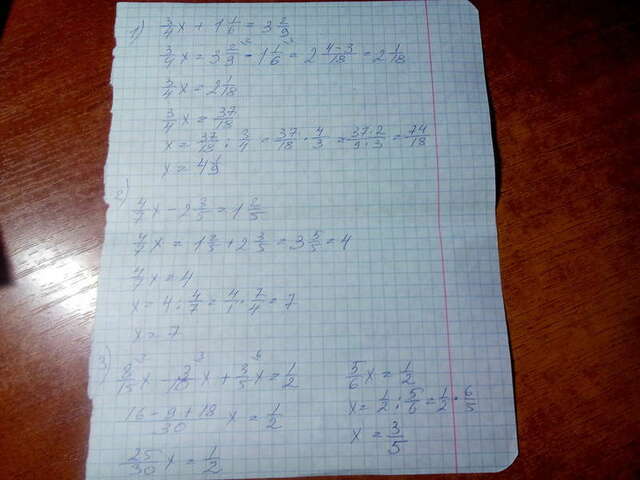 1) 3/4 x + 1 1/6 = 3 2/9
3/4 x = 3 2/9 - 1 1/6 = 2 4-3/18 = 2 1/18
3/4 x = 2 1/18
3/4 x = 37/18
x = 37/18 : 3/4 = 37/18 · 4/3 = 37·2/9·3 = 74/18
x = 4 1/9
2) 4/7 x - 2 3/5 = 1 2/5
4/7 x = 1 2/5 + 2 3/5 = 3 5/5 = 4
4/7 x = 4
x = 4 : 4/7 = 4/1 · 7/4 = 7
x = 7
3) 8/15 x - 3/10 x + 3/5 x = 1/2
16-9+18/30 x = 1/2
25/30 x = 1/2
5/6 x = 1/2
x = 1/2 : 5/6 = 1/2 · 6/5
x = 3/5